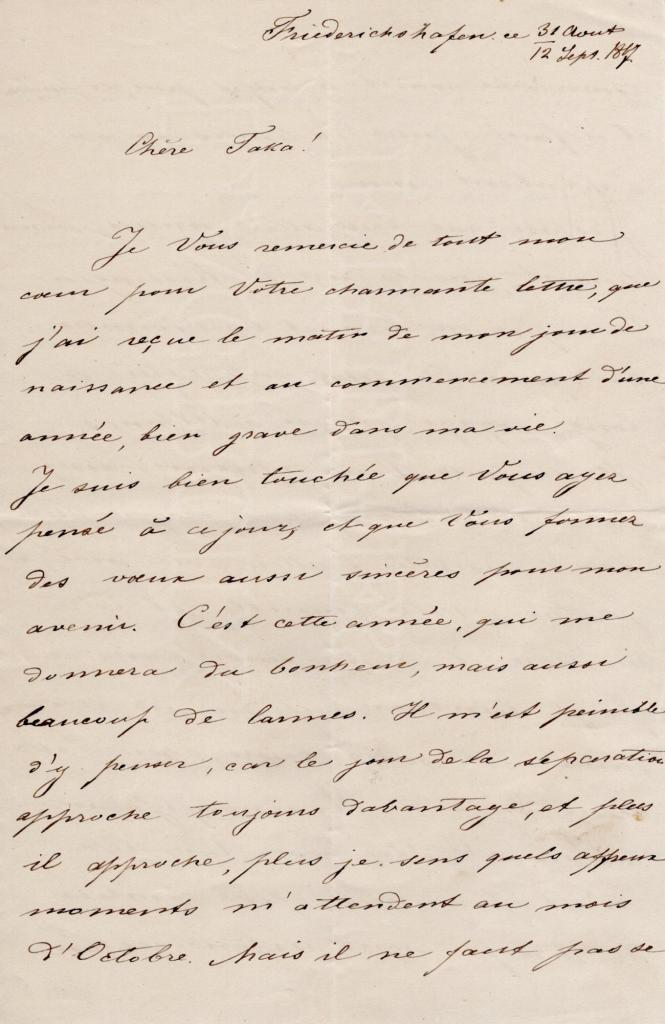 Friederichshafen. ce 31 Aout
12 Sept. 18
Chère Taka!
Je Vous remercie de tout mon
cœur pour Votre charmante lettre, que
j'ai reçue le matin de mon jour de
naissance et au commencement d'une
année, bien grave dans ma vie.
Je suis bien touchée que Vous ayez
pensé à ce jour, et que Vous formez
des vœux aussi sincères pour mon
avenir. C'est cette année, qui me
donnera du bonheur, mais aussi
beaucoup de larmes. Il m'est peinible
d'y penser, car le jour de la séparation
approche toujours dabantage, et plus
il approche, plus je sens quels affreux
moments m'attendent au mois
d'Octobre. Mais il ne faut pas se